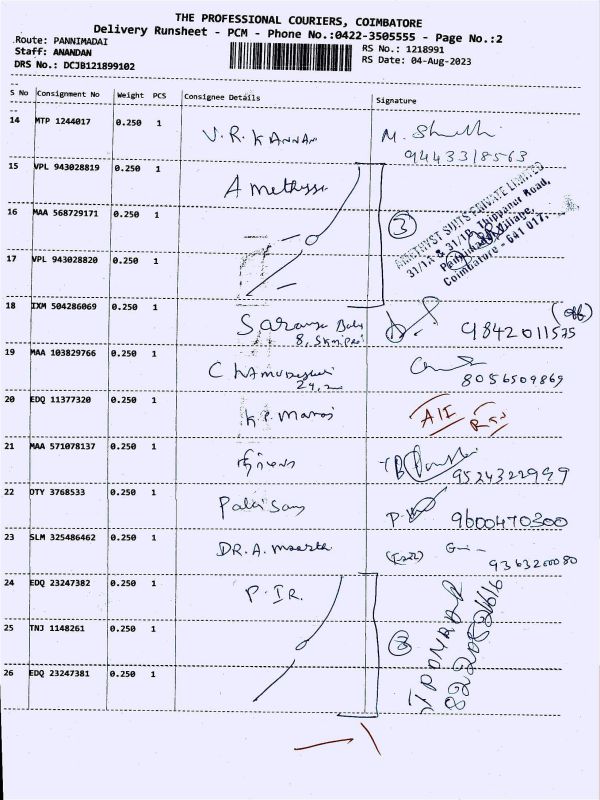 THE PROFESSIONAL COURIERS, COIMBATORE
Delivery Runsheet - PCM - Phone No.:0422-3505555 - Page No.:2
Route: PANNIMADAI
RS No.: 1218991
Staff: ANANDAN
RS Date: 04-Aug-2023
DRS No.: DCJB121899102
S No Consignment No Weight PCS Consignee Details Signature
14 MTP 1244017 0.250 1 V.R. KANNAN M.
9443318563
15 VPL 943028819 0.250 1
16 MAA 568729171 0.250 1 3
AMETHYST SUITS PRIVATE LIMITED
31/1A & 31/1B, Thippanur Road,
Pannimadai Village,
Coimbatore - 641 017.
17 VPL 943028820 0.250 1
18 IXM 504286069 0.250 1 Saranya Babu 9842011575 (off)
19 MAA 103829766 0.250 1 8056509869
20 EDQ 11377320 0.250 1 K.P. Manoj
21 MAA 571078137 0.250 1 9524322999
22 OTY 3768533 0.250 1 Palni Samy 9600470300
23 SLM 325486462 0.250 1 DR. A. 9363200080
24 EDQ 23247382 0.250 1 P. IR.
25 TNJ 1148261 0.250 1 3
26 EDQ 23247381 0.250 1